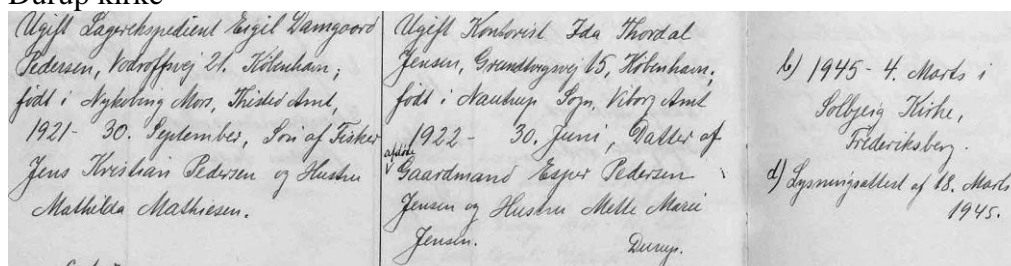 Durup kirke
Ugift Lagerekspedient Ejgil Damgaard
Pedersen, Vodroffsvej 21. København;
født i Nykøbing Mors, Thisted Amt,
1921 - 30. September, Søn af Fisker
Jens Kristian Pedersen og Hustru
Mathilda Mathiesen.
Ugift Kontorist Ida Thordal
Jensen, Grundtvigsvej 15, København;
født i Nautrup Sogn, Viborg Amt
1922 - 30. Juni, Datter af
afdøde Gaardmand Esper Pedersen
Jensen og Hustru Mette Marie
Jensen. Durup.
b) 1945 - 4. Marts i
Solbjerg Kirke,
Frederiksberg.
d) Lysningsattest af 18. Marts
1945.